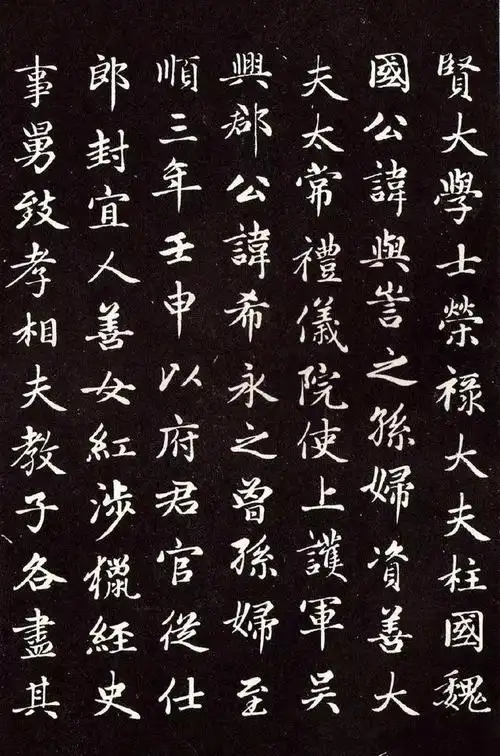 賢大學士榮祿大夫柱國魏
國公諱與訔之孫婦資善大
夫太常禮儀院使上護軍吳
興郡公諱希永之曾孫婦至
順三年壬申以府君官從仕
郎封宜人善女紅涉獵經史
事舅致孝相夫教子各盡其